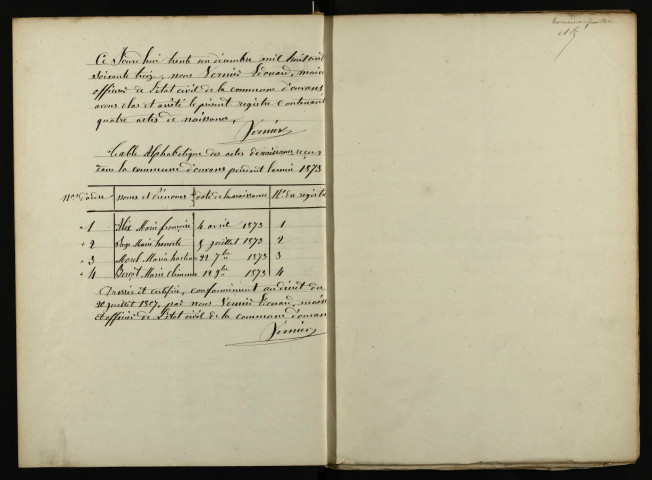 Ce Jourd'hui trente un décembre mil huit cent
soixante treize, nous Vernier Edouard, maire
officier de l'état civil de la commune d'ourans
avons clos et arrêté le présent registre contenant
quatre actes de naissance.
Vernier
Table Alphabétique des actes de naissance reçus
dans la commune d'ourans pendant l'année 1873
Nos d'ordre noms et Prénoms date de la naissance No du registre
1 Alix Marie françoise 4 avril 1873 1
2 Marie honorte 5 juillet 1873 2
3 Morel Maria 22 7bre 1873 3
4 Marie 12 9bre 1873 4
Dressée et certifiée, conformément au décret du
20 juillet 1807, par nous Vernier Edouard, maire
et officier de l'état civil de la commune d'ourans
Vernier